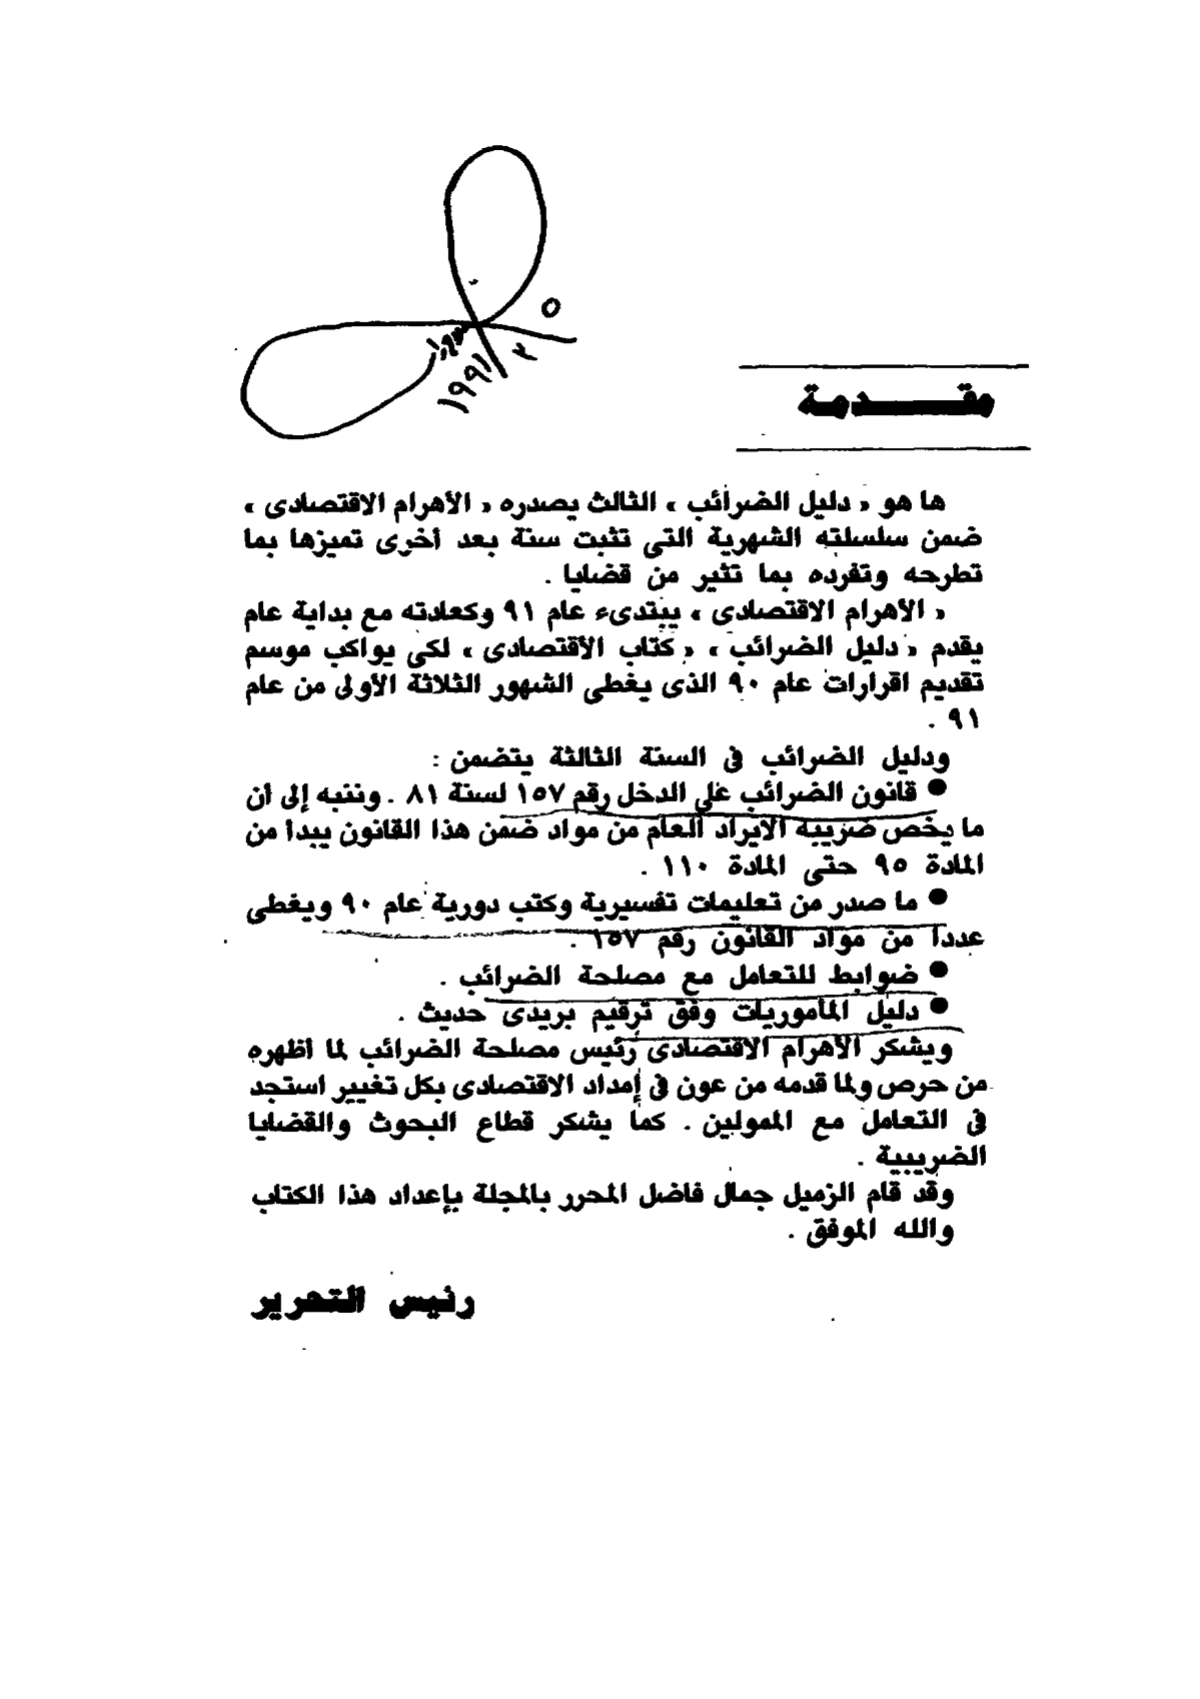 ٥
٢
١٩٩١
مقـــدمة
ها هو « دليل الضرائب » الثالث يصدره « الأهرام الاقتصادى »
ضمن سلسلته الشهرية التى تثبت سنة بعد أخرى تميزها بما
تطرحه وتفرده بما تثير من قضايا .
« الأهرام الاقتصادى » يبتدىء عام ٩١ وكعادته مع بداية عام
يقدم « دليل الضرائب » « كتاب الأقتصادى » لكى يواكب موسم
تقديم اقرارات عام ٩٠ الذى يغطى الشهور الثلاثة الأولى من عام
٩١ .
ودليل الضرائب فى السنة الثالثة يتضمن :
● قانون الضرائب على الدخل رقم ١٥٧ لسنة ٨١ . وننبه إلى أن
ما يخص ضريبة الايراد العام من مواد ضمن هذا القانون يبدأ من
المادة ٩٥ حتى المادة ١١٠ .
● ما صدر من تعليمات تفسيرية وكتب دورية عام ٩٠ ويغطى
عدداً من مواد القانون رقم ١٥٧ .
● ضوابط للتعامل مع مصلحة الضرائب .
● دليل المأموريات وفق ترقيم بريدى حديث .
ويشكر الأهرام الاقتصادى رئيس مصلحة الضرائب لما أظهره
من حرص ولما قدمه من عون فى إمداد الاقتصادى بكل تغيير استجد
فى التعامل مع الممولين . كما يشكر قطاع البحوث والقضايا
الضريبية .
وقد قام الزميل جمال فاضل المحرر بالمجلة بإعداد هذا الكتاب
والله الموفق .
رئيس التحرير